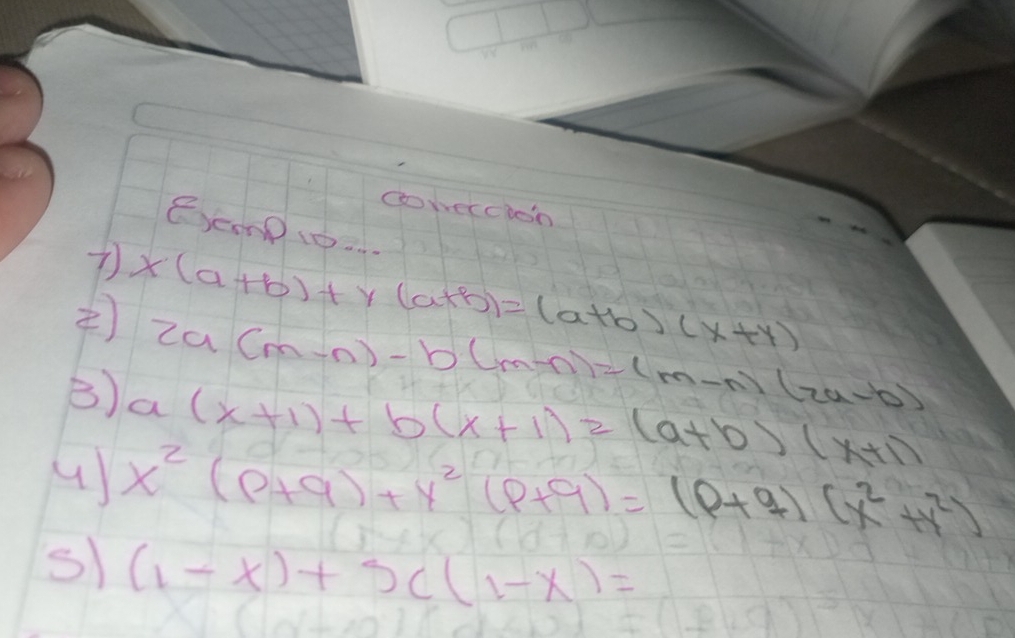 corrección
Ejemplo...
1) x(a+b)+y(a+b)=(a+b)(x+y)
2) 2a(m-n)-b(m-n)=(m-n)(2a-b)
3) a(x+1)+b(x+1)=(a+b)(x+1)
4) x²(p+q)+y²(p+q)=(p+q)(x²+y²)
5) (1-x)+5c(1-x)=